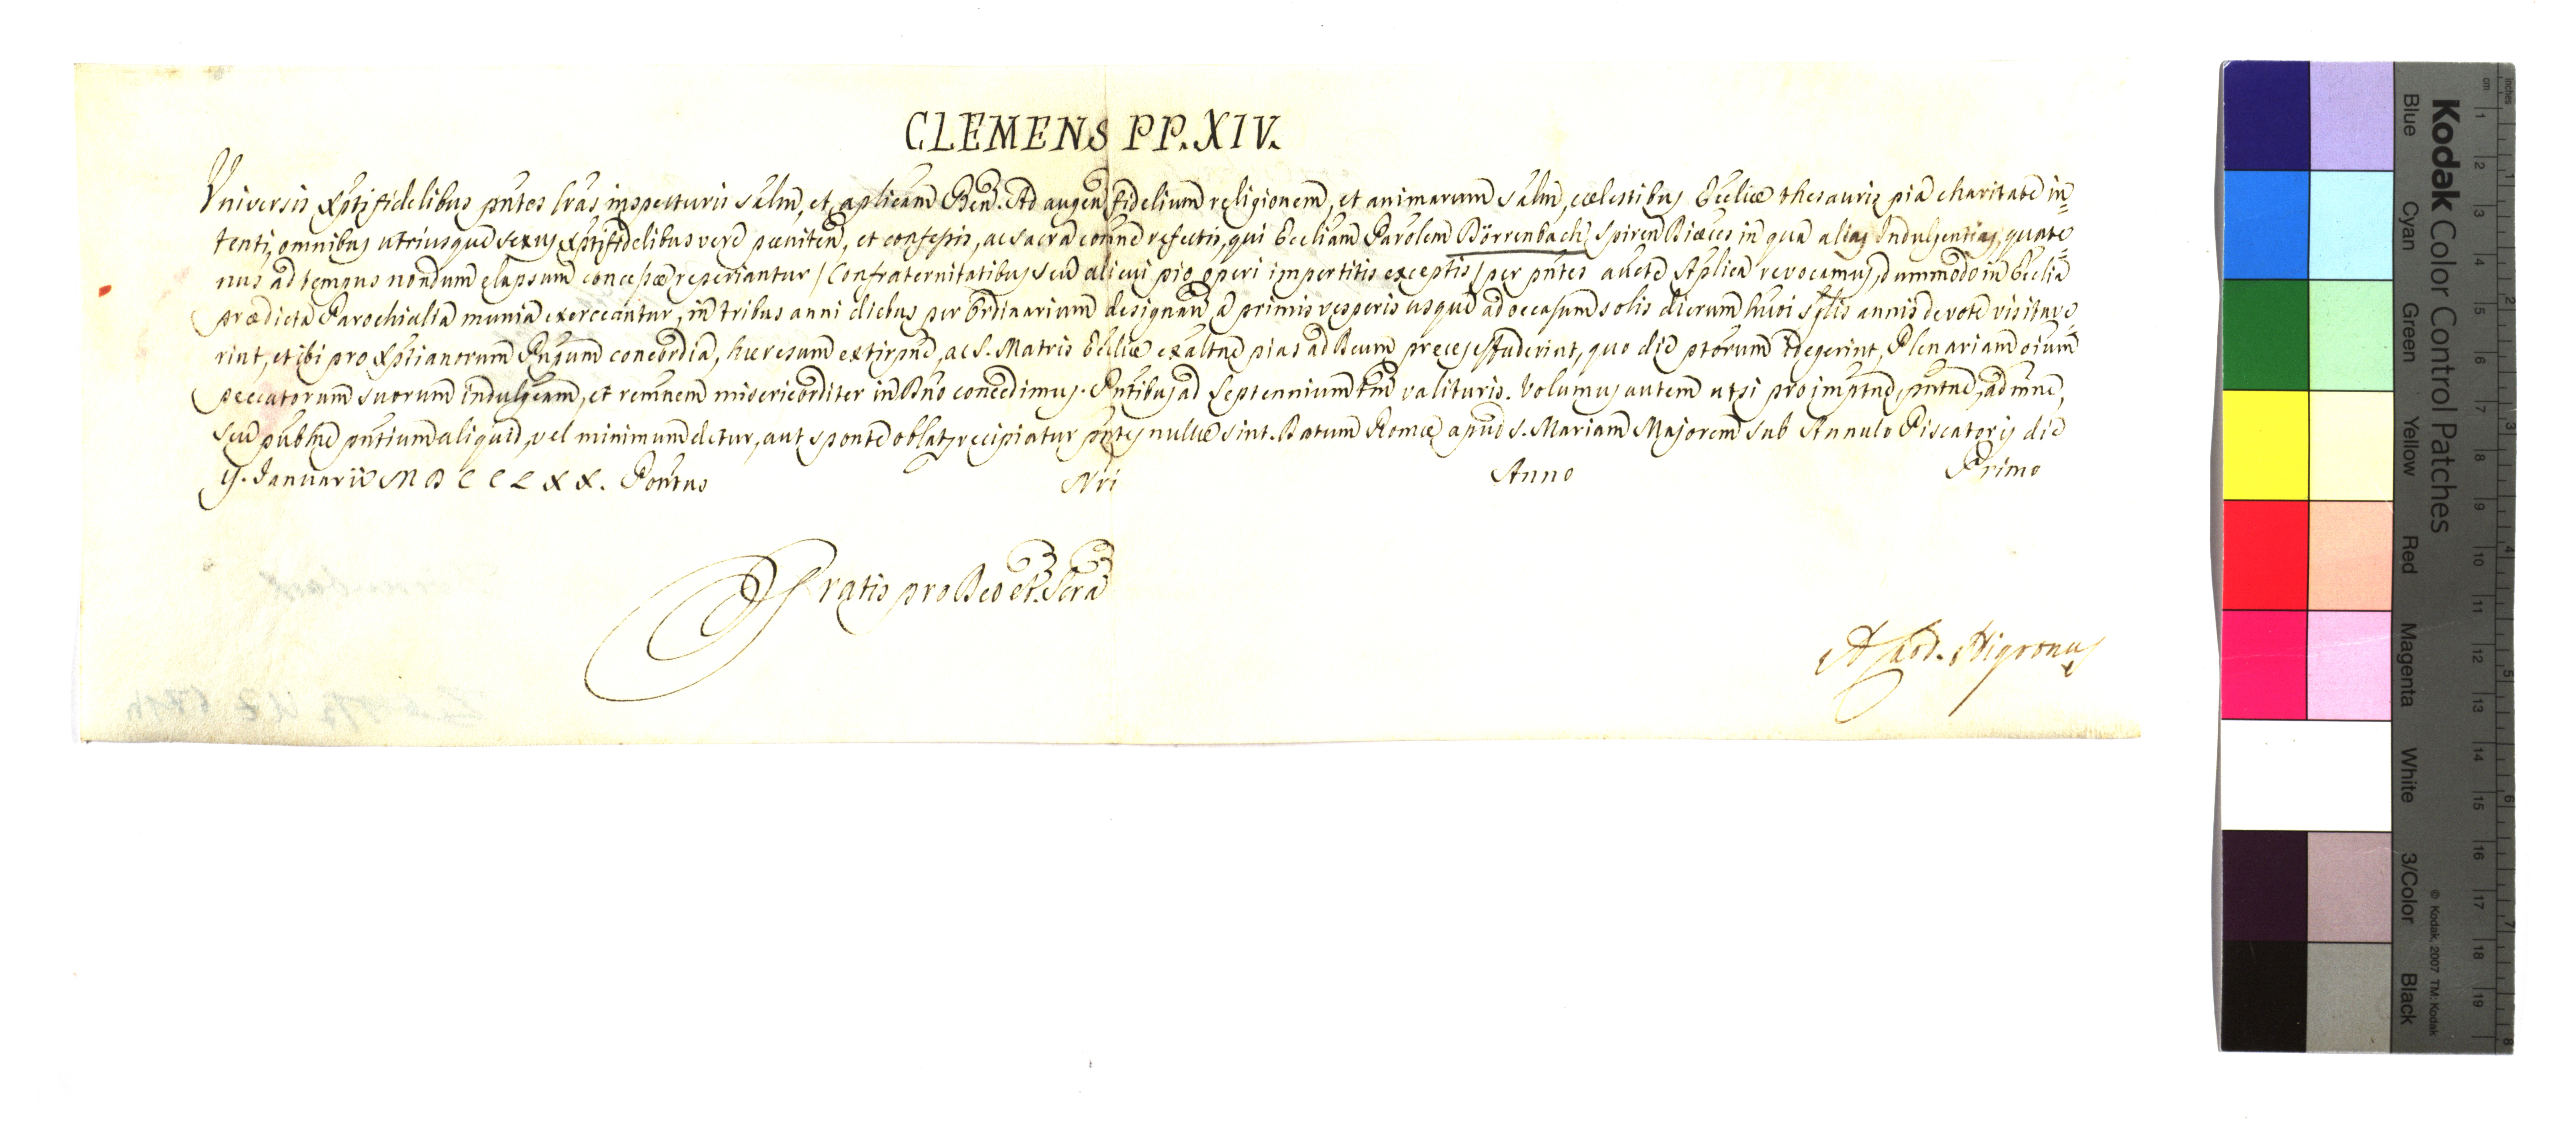 CLEMENS PP. XIV.
Universis Xptifidelibus pntes lras inspecturis salm, et aplicam Ben. Ad augen fidelium religionem, et animarum salm, cœlestibus Eccliæ thesauris pia charitate in=
tenti, omnibus utriusque sexus Xptifidelibus vere pœniten, et confessis, ac sacra comne refectis, qui Eccliam Parolem Börrenbach, Spiren Diæces in qua alias Indulgentias, quate=
nus ad tempus nondum elapsum concessæ reperiantur / Confraternitatibus seu alicui pio operi impertitis exceptis / per pntes aucte Aplica revocamus, dummodo in Ecclia
prædicta Parochialia munia exerceantur, in tribus anni diebus per Ordinarium designan a primis vesperis usque ad occasum solis dierum huoi sglis annis devote visitave=
rint, et ibi pro Xptianorum Pnpum concordia, hæresum extirpne, ac S. Matris Ecclæ exaltne pias ad Deum preces effuderint, quo die ptorum id egerint, Plenariam oium
peccatorum suorum indulgeam, et remnem misericorditer in Dno concedimus. Pntibus ad Septennium tm valituris. Volumus autem ut si pro imptne, pntne, admne,
seu publne pntium aliquid, vel minimum detur, aut sponte oblat recipiatur pntes nullæ sint. Datum Romæ apud S. Mariam Majorem sub Annulo Piscatoris die
9. Januarii MDCCLXX. Pontus Nri Anno Primo
Gratis pro Deo et Scra
A. Card. Nigronus
Kodak Color Control Patches
Blue Cyan Green Yellow Red Magenta White 3/Color Black
© Kodak, 2007 TM: Kodak
inches 1 2 3 4 5 6 7 8
cm 1 2 3 4 5 6 7 8 9 10 11 12 13 14 15 16 17 18 19